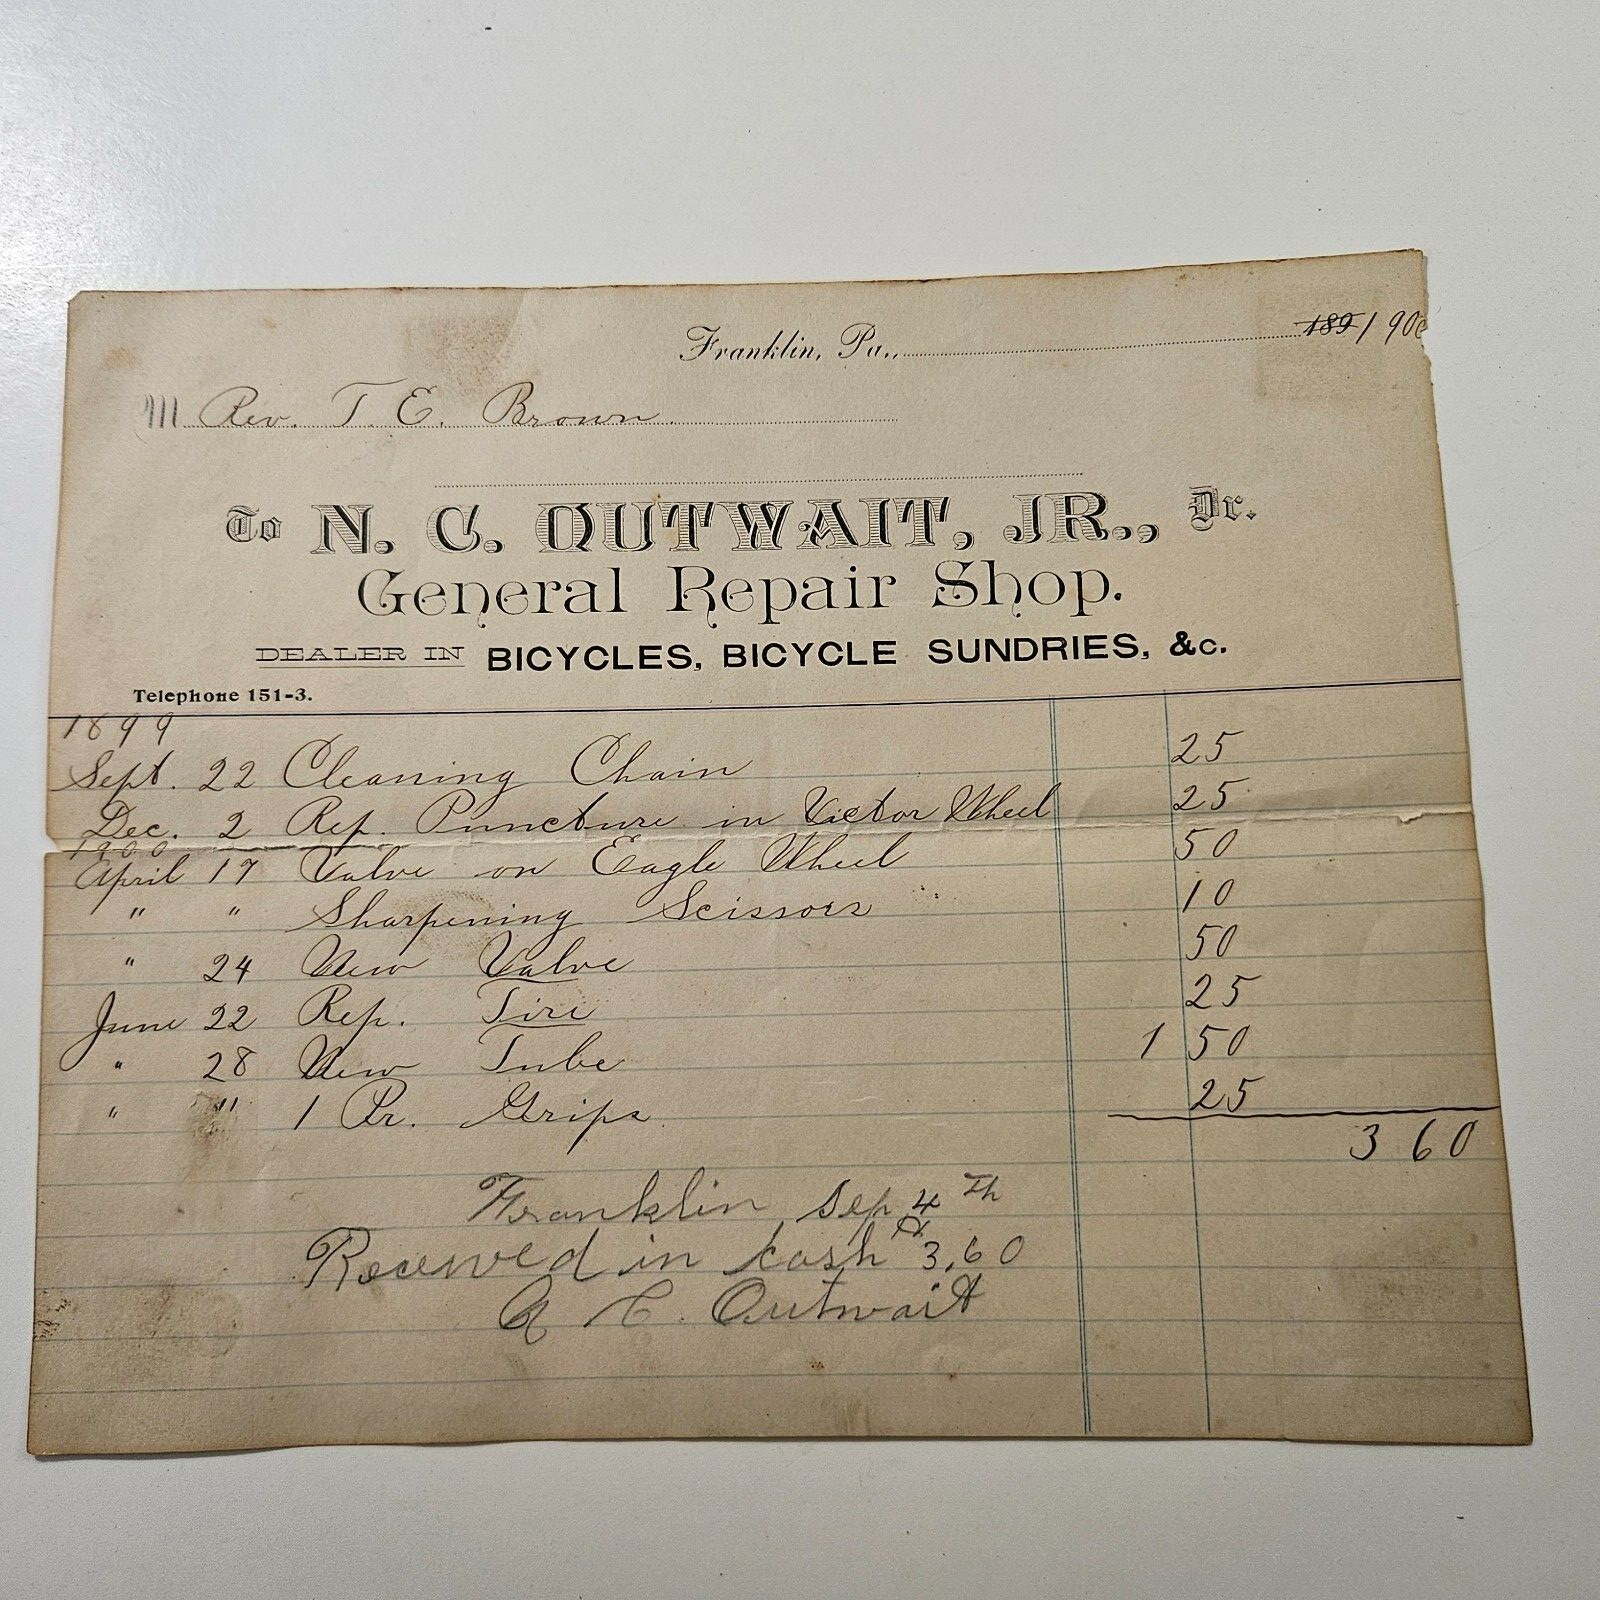 Franklin, Pa., 189 1900
M Rev. T. E. Brown
To N. C. OUTWAIT, JR., Dr.
General Repair Shop.
DEALER IN BICYCLES, BICYCLE SUNDRIES, &c.
Telephone 151-3.
1899
Sept. 22 Cleaning Chain 25
Dec. 2 Rep. Puncture in Victor Wheel 25
1900
April 17 Valve on Eagle Wheel 50
" " Sharpening Scissors 10
" 24 New Valve 50
June 22 Rep. Tire 25
" 28 New Tube 1 50
" " 1 Pr. Grips 25
3 60
Franklin Sep 4 Th
Received in cash $3.60
N C. Outwait